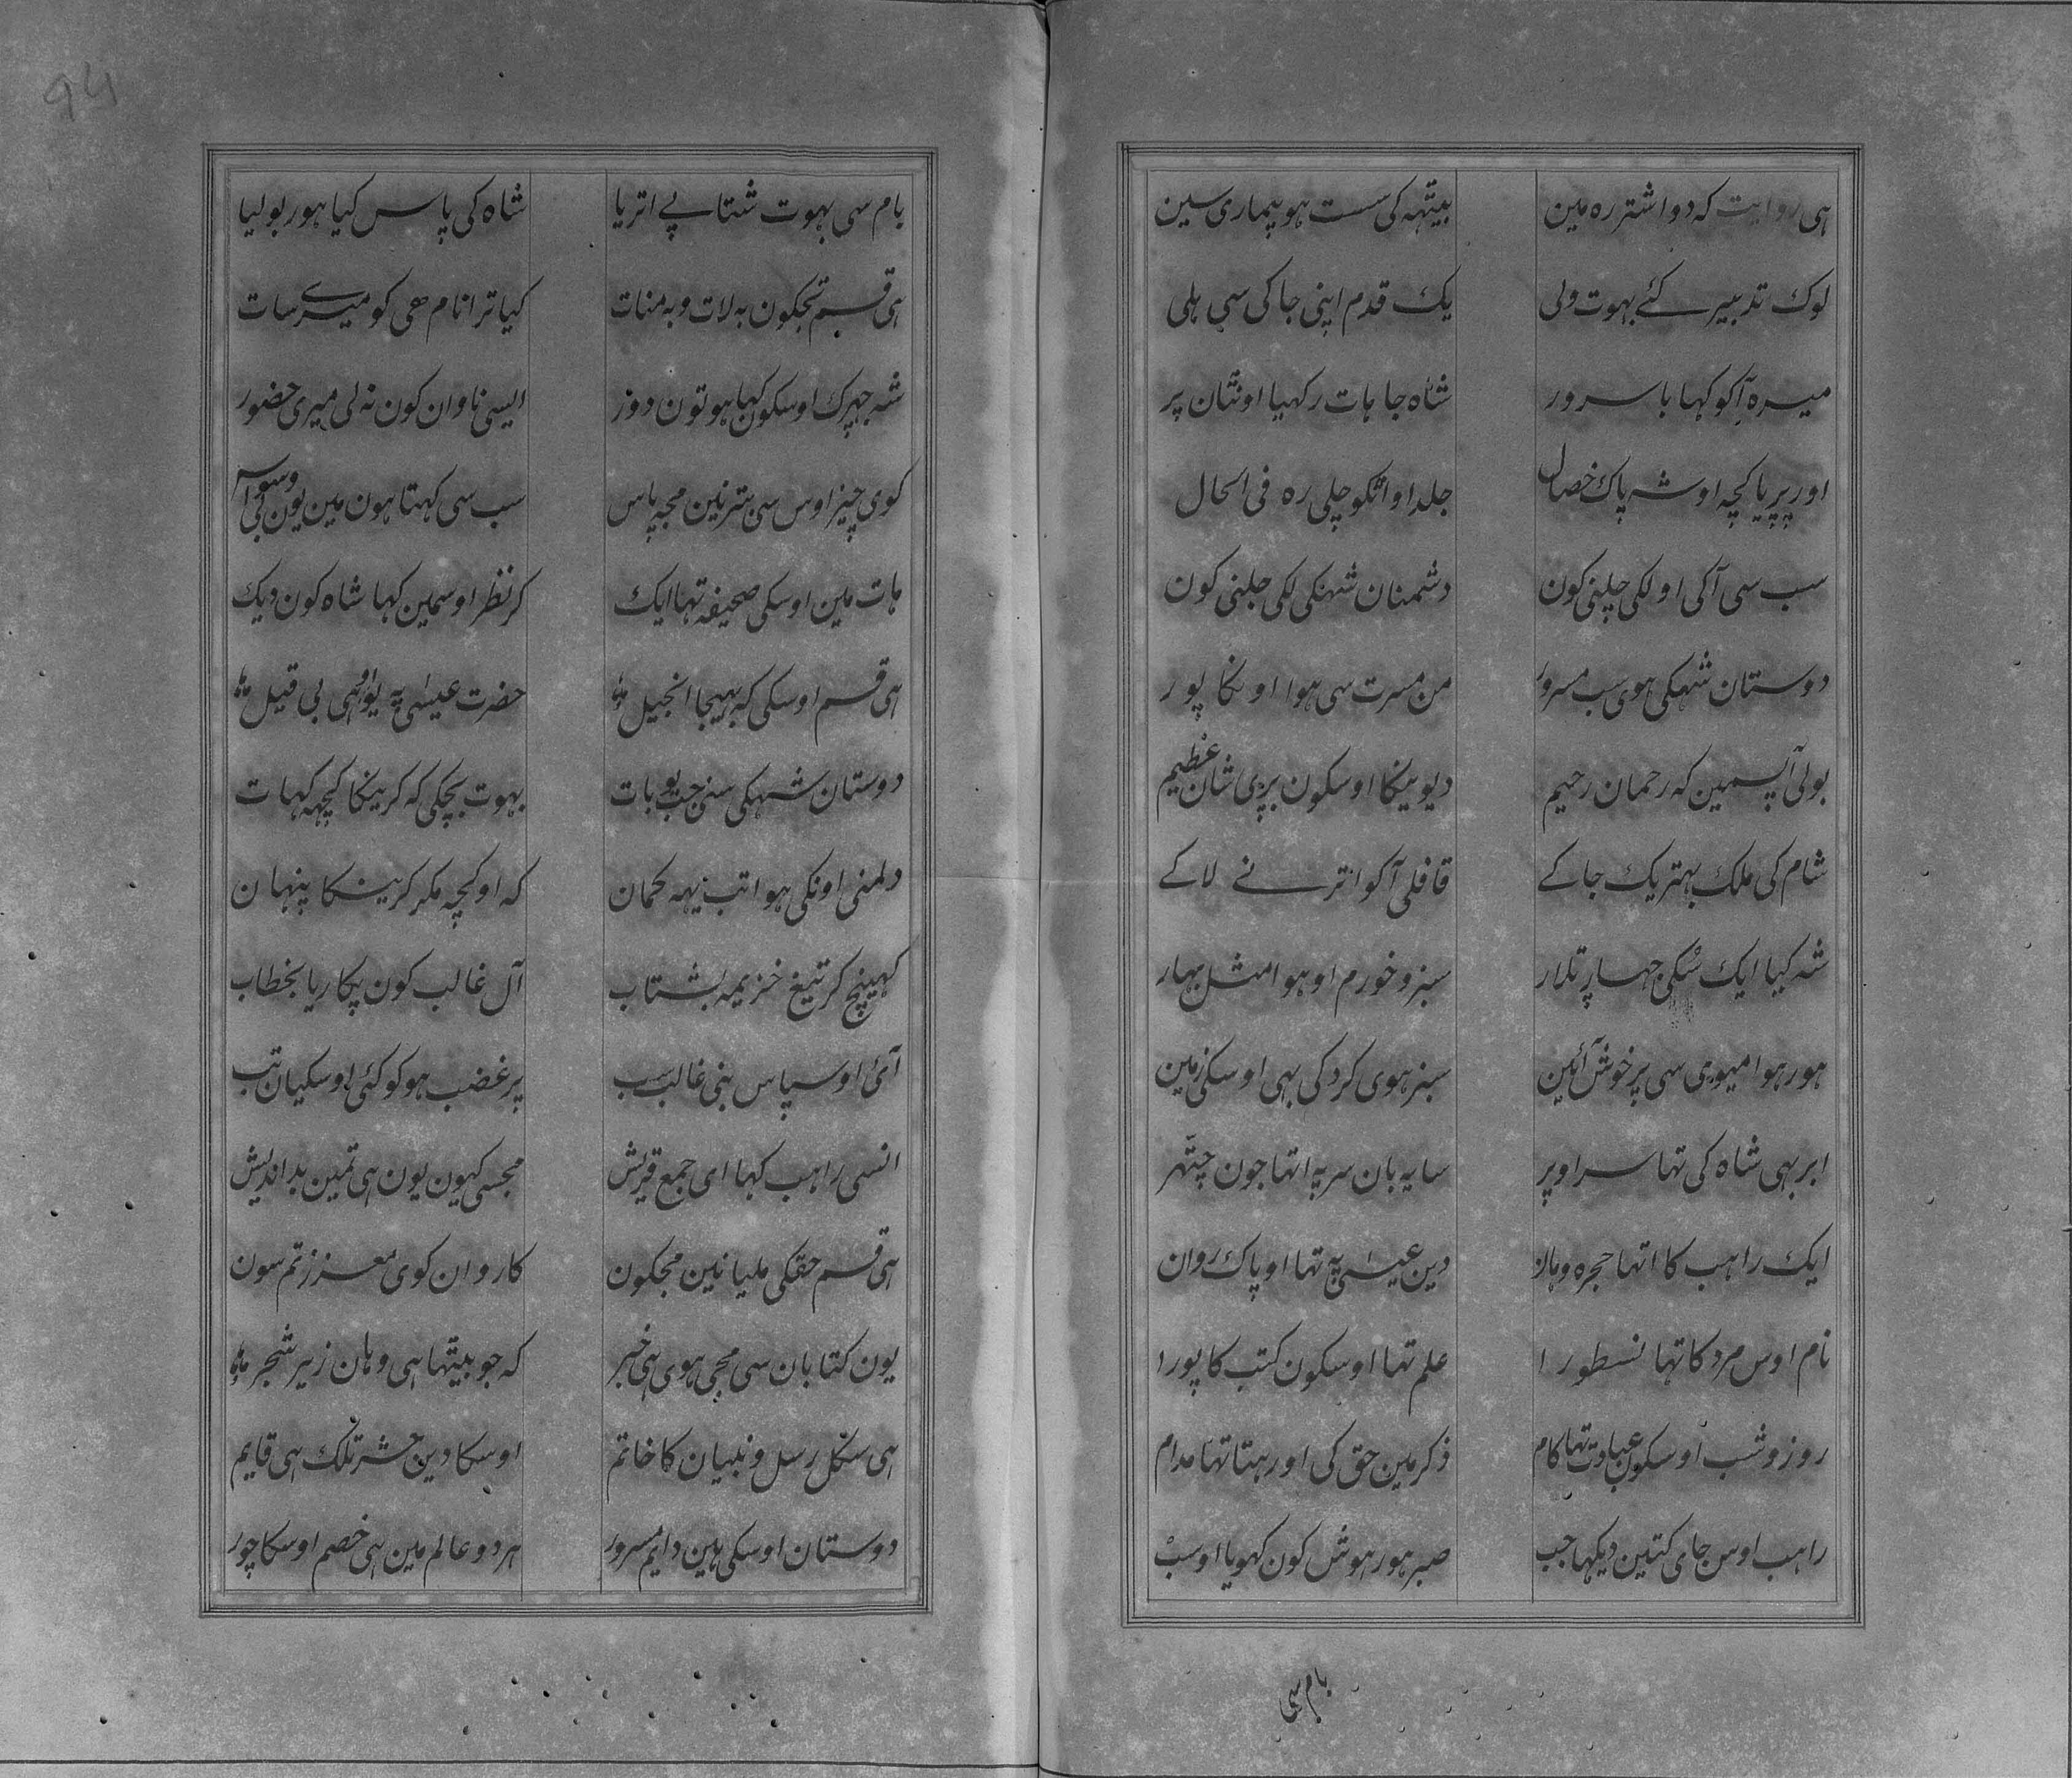 ہی روایت کہ دو اشتر رہ مین بیتہہ کی سست ہو بیماری سین
لوک تدبیر کئے بہوت ولی یک قدم اپنی جا کی سی ہلی
میسرہ آکو کہا با سرور شاہ جا ہات رکہیا اونتان پر
اور پریا کچہ او شہ پاک خصال جلد او اتکو چلی رہ فی الحال
سب سی آکی او لکی چلنی کون دشمنان شہنکی لکی جلنی کون
دوستان شہکی ہوی سب مسرور من مسرت سی ہوا اونکا پور
بولی آپسمین کہ رحمان رحیم دیوینکا اوسکون بڑی شان عظیم
شام کی ملک بہتر یک جاکے قافلی آکو اترنے لاکے
شہ کیا ایک سکی جہاڑ تلار سبز و خورم او ہوا مثل بہار
ہور ہوا میوی سی پر خوش آئین سبز ہوی کرد کی بہی اوسکی زمین
ابر بہی شاہ کی تہا سر اوپر سایہ بان سر پہ اتہا جون چتہر
ایک راہب کا اتہا حجرہ وہان دین عیسیٰ پہ تہا او پاک روان
نام اوس مرد کا تہا نسطورا علم تہا اوسکون کتب کا پورا
روز و شب اوسکون عبادت تہا کام ذکر مین حق کی او رہتا تہا مدام
راہب اوس جای کتین دیکہا جب صبر ہور ہوش کون کہویا اوسب
بام سی
94
بام سی بہوت شتابے اتریا شاہ کی پاس کیا ہور بولیا
ہی قسم تجکون بہ لات و بہ منات کیا ترا نام ھی کو میرے سات
شہ جہڑک اوسکون کہیا ہو تون دور ایسی ناوان کون نہ لی میری حضور
کوی چیز اوس سی بتر نین مجہ پاس سب سی کہتا ہون مین یون بی وسواس
ہات مین اوسکی صحیفہ تہا ایک کر نظر اوسمین کہا شاہ کون دیک
ہی قسم اوسکی کہ بہیجا انجیل حضرت عیسیٰ پہ یو او ہی بی قیل
دوستان شہکی سنی جب یو بات بہوت بجکی کہ کرینکا کچہہ کہات
دلمنی اونکی ہوا تب یہہ کمان کہ او کچہ مکر کرینکا پنہان
کہینچ کر تیغ خزیمہ بشتاب آل غالب کون پکاریا بخطاب
آئ اوس پاس بنی غالب سب پر غضب ہو کو کئی اوسکیان تب
انسی راہب کہا ای جمع قریش مجسی کیون یون ہی تمین بد اندیش
ہی قسم حقکی ملیا نین مجکون کاروان کوی معزز تم سون
یون کتابان سی مجی ہوی ہی خبر کہ جو بیتہا ہی وہان زیر شجر
ہی سکل رسل و نبیان کا خاتم اوسکا دین حشر تلک ہی قایم
دوستان اوسکی ہین دایم مسرور ہر دو عالم مین ہی خصم اوسکا چور